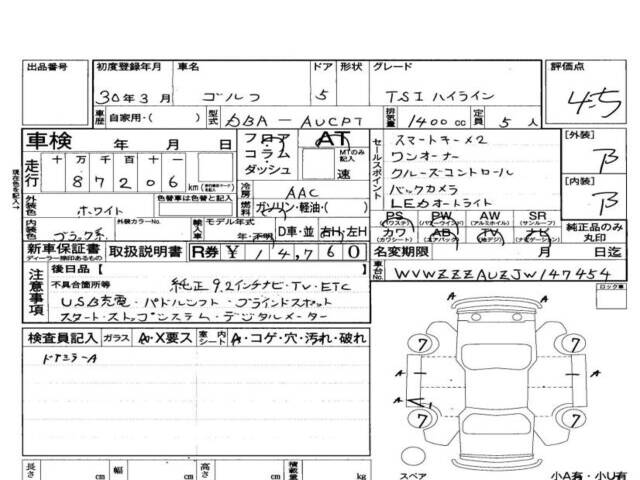 出品番号 初度登録年月 車名 ドア 形状 グレード 評価点
30年3月 ゴルフ 5 TSI ハイライン 4.5
車歴 自家用・( ) 型式 DBA-AUCPT 排気量 1400cc 定員 5人
車検 年 月 日
フロア コラム ダッシュ
AT MTのみ記入 速
走行 十万 万 千 百 十 一 km
87206
冷房 AAC
外装色 ホワイト 色替車は色替と記入
燃料 ガソリン・軽油・( )
内装色 ブラック系 外装カラーNo. 輸入車 モデル年式 年・不明 D車・並 右H・左H
セールスポイント
スマートキー×2
ワンオーナー
クルーズコントロール
バックカメラ
LEDオートライト
[外装] B
[内装] B
PS PW AW SR
(パワステ) (パワーウインド) (アルミホイル) (サンルーフ)
カワ AB TV ナビ
(カワシート) (エアバック) (地デジ) (ナビゲーション)
純正品のみ丸印
現在色を記入↑
新車保証書 ディーラー捺印あるもの 取扱説明書 R券 ¥14,760
名変期限 月 日迄
車台No. WVWZZZAUZJW147454
注意事項 後日品 [ ]
不具合箇所等 純正9.2インチナビ・TV・ETC
USB充電・パドルシフト・ブラインドスポット
スタート・ストップシステム・デジタルメーター
ロック車
検査員記入 ガラス A・X要ス 室内シート A・コゲ・穴・汚れ・破れ
ドアミラーA
A
7 7
A A
A
7 7
スペア 小A有・小U有
長さ cm 幅 cm 高さ cm 積載量 kg